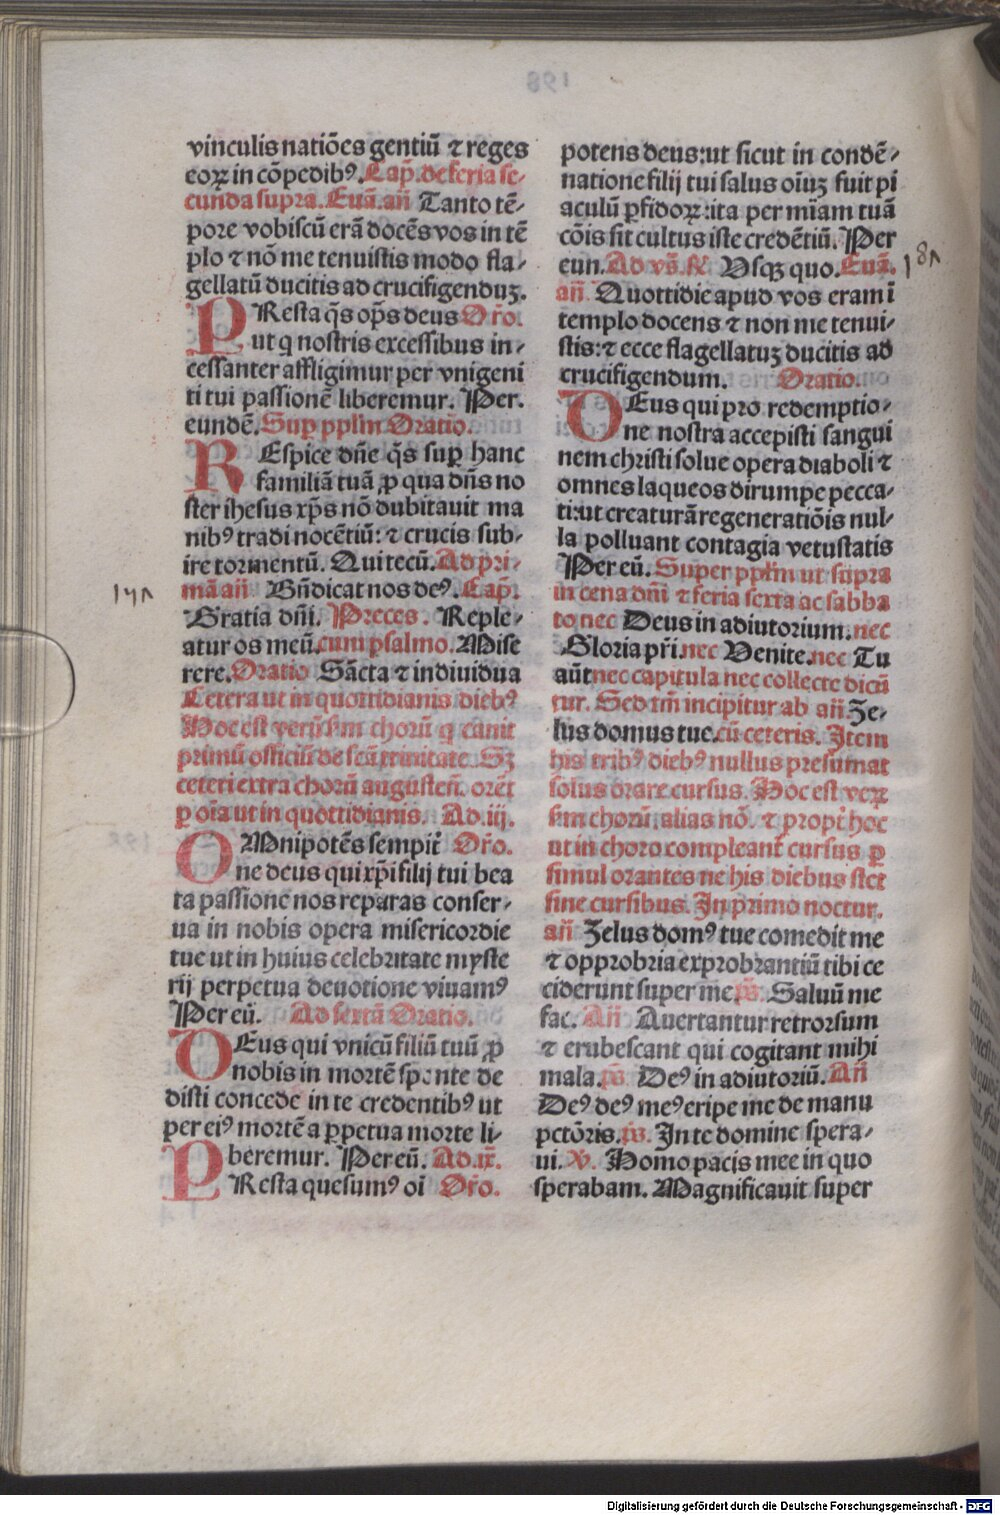 vinculis natiões gentiũ ⁊ reges
eoꝝ in cõpedibꝰ. Cap̃. de feria se-
cunda supra. Euã. añ Tanto tẽ-
pore vobiscũ erã docẽs vos in tẽ
plo ⁊ nõ me tenuistis modo fla-
gellatũ ducitis ad crucifigenduʒ.
PResta q̃s op̃s deus Or̃o.
ut q nostris excessibus in-
cessanter affligimur per vnigeni
ti tui passionẽ liberemur. Per.
eundẽ. Sup pplm̃ Oratio.
REspice dñe q̃s sup hanc
familiã tuã ꝓ qua dñs no
ster ihesus xp̃s nõ dubitauit ma
nibꝰ tradi nocẽtiũ: ⁊ crucis sub-
ire tormentũ. Qui tecũ. Ad pri-
mã añ Bñdicat nos deꝰ. Cap̃.
Gratia dñi. Preces. Reple-
atur os meũ. cum psalmo. Mise
rere. Oratio Sãcta ⁊ indiuidua
Cetera ut in quottidianis diebꝰ
Hoc est verũ ẜm chorũ q canit
primũ officiũ de scã trinitate. Sʒ
ceteri extra chorũ augusteñ. orẽt
ꝑ oĩa ut in quottidianis. Ad .iij.
OMnipotẽs sempit̃ Or̃o.
ne deus qui xp̃i filij tui bea
ta passione nos reparas conser-
ua in nobis opera misericordie
tue ut in huius celebritate myste
rij perpetua deuotione viuamꝰ
Per eũ. Ad sextã Oratio.
DEus qui vnicũ filiũ tuũ ꝓ
nobis in mortẽ sponte de
disti concede in te credentibꝰ ut
per eiꝰ mortẽ a ꝑpetua morte li-
beremur. Per eũ. Ad .ix.
PResta quesumꝰ oĩ Or̃o.
potens deus: ut sicut in condẽ-
natione filij tui salus oĩuʒ fuit pi
aculũ ꝑfidoꝝ: ita per mĩam tuã
cõis sit cultus iste credẽtiũ. Per
eun. Ad vs̃. Vsqʒ quo. Euã.
añ Quottidie apud vos eram ĩ
templo docens ⁊ non me tenui-
stis: ⁊ ecce flagellatuʒ ducitis ad
crucifigendum. Oratio.
DEus qui pro redemptio-
ne nostra accepisti sangui
nem christi solue opera diaboli ⁊
omnes laqueos dirumpe pecca-
ti: ut creaturã regeneratiõis nul-
la polluant contagia vetustatis
Per eũ. Super pplm̃ ut supra
in cena dñi ⁊ feria sexta ac sabba
to nec Deus in adiutorium. nec
Gloria pr̃i. nec Venite. nec Tu
aũt nec capitula nec collecte dicũ
tur. Sed tm̃ incipitur ab añ Ze-
lus domus tue. cũ ceteris. Item
his tribꝰ diebꝰ nullus presumat
solus orare cursus. Hoc est veꝝ
ẜm chorũ, alias nõ. ⁊ propt̃ hoc
ut in choro compleant cursus ꝑ
simul orantes ne his diebus stet
sine cursibus. In primo noctur.
añ Zelus domꝰ tue comedit me
⁊ opprobria exprobrantiũ tibi ce
ciderunt super me. ps̃. Saluũ me
fac. Añ Auertantur retrorsum
⁊ erubescant qui cogitant mihi
mala. ps̃ Deꝰ in adiutoriũ. Añ
Deꝰ deꝰ meꝰ eripe me de manu
pctõris. ps̃. In te domine spera-
ui. V. Homo pacis mee in quo
sperabam. Magnificauit super
Digitalisierung gefördert durch die Deutsche Forschungsgemeinschaft - DFG